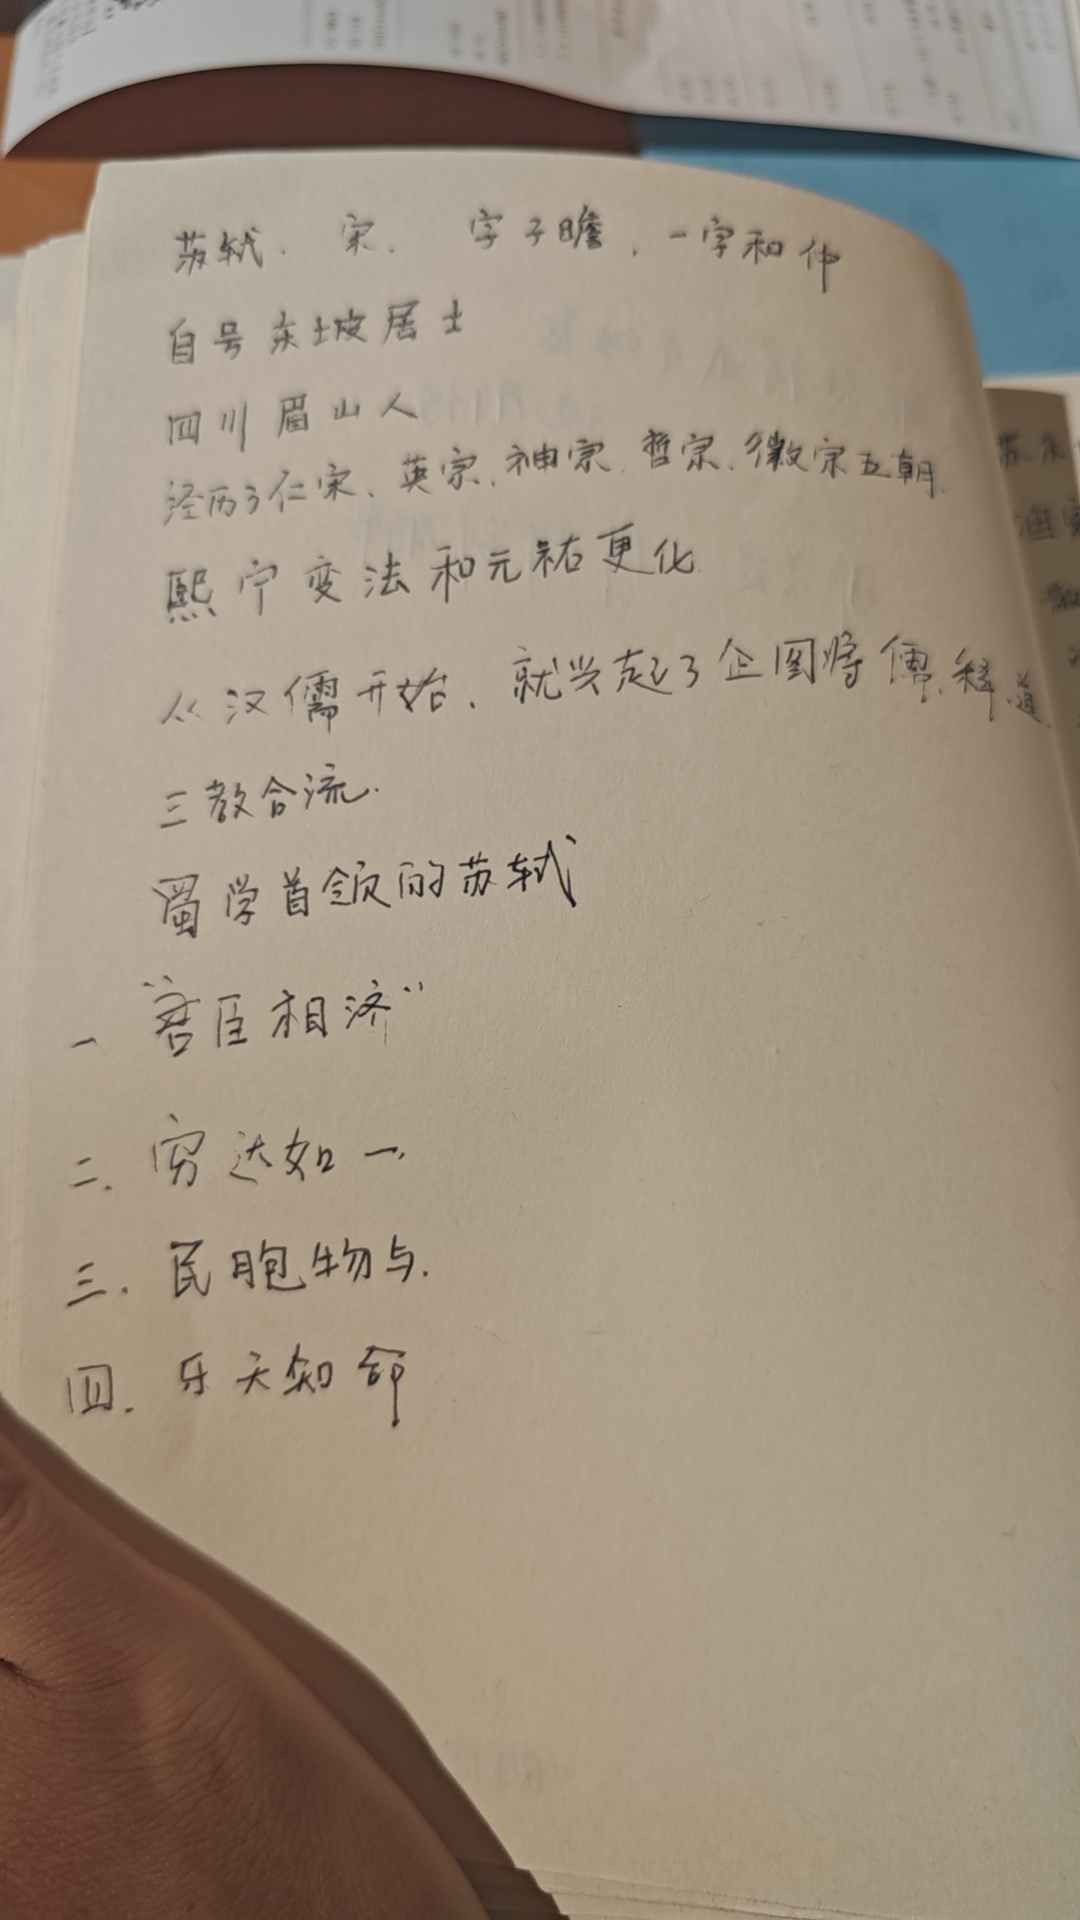 苏轼、宋、 字子瞻，一字和仲
自号东坡居士
四川眉山人
经历了仁宗、英宗、神宗、哲宗、徽宗五朝.
熙宁变法和元祐更化
从汉儒开始，就兴起了企图将儒、释、道
三教合流.
蜀学首领的苏轼
一 “君臣相济”
二. 穷达如一.
三. 民胞物与.
四. 乐天知命